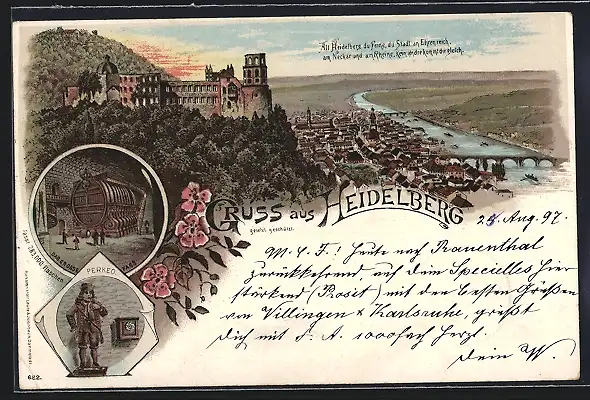 Alt Heidelberg, du feine, du Stadt an Ehren reich,
am Neckar und am Rheine, kein' andre kommt dir gleich.
GRUSS AUS HEIDELBERG
gesetzl. geschützt.
25. Aug. 97.
M. l. F.! Heute nach Frauenthal
zurückkehrend auf dem Specielles hier
stärkend (Prosit) mit den besten Grüßen
von Villingen & Karlsruhe, grüßt
dich mit F. A. 1000fach herzl.
Dein W.
DAS GROSSE FASS
Flaschen
PERKEO.
682.